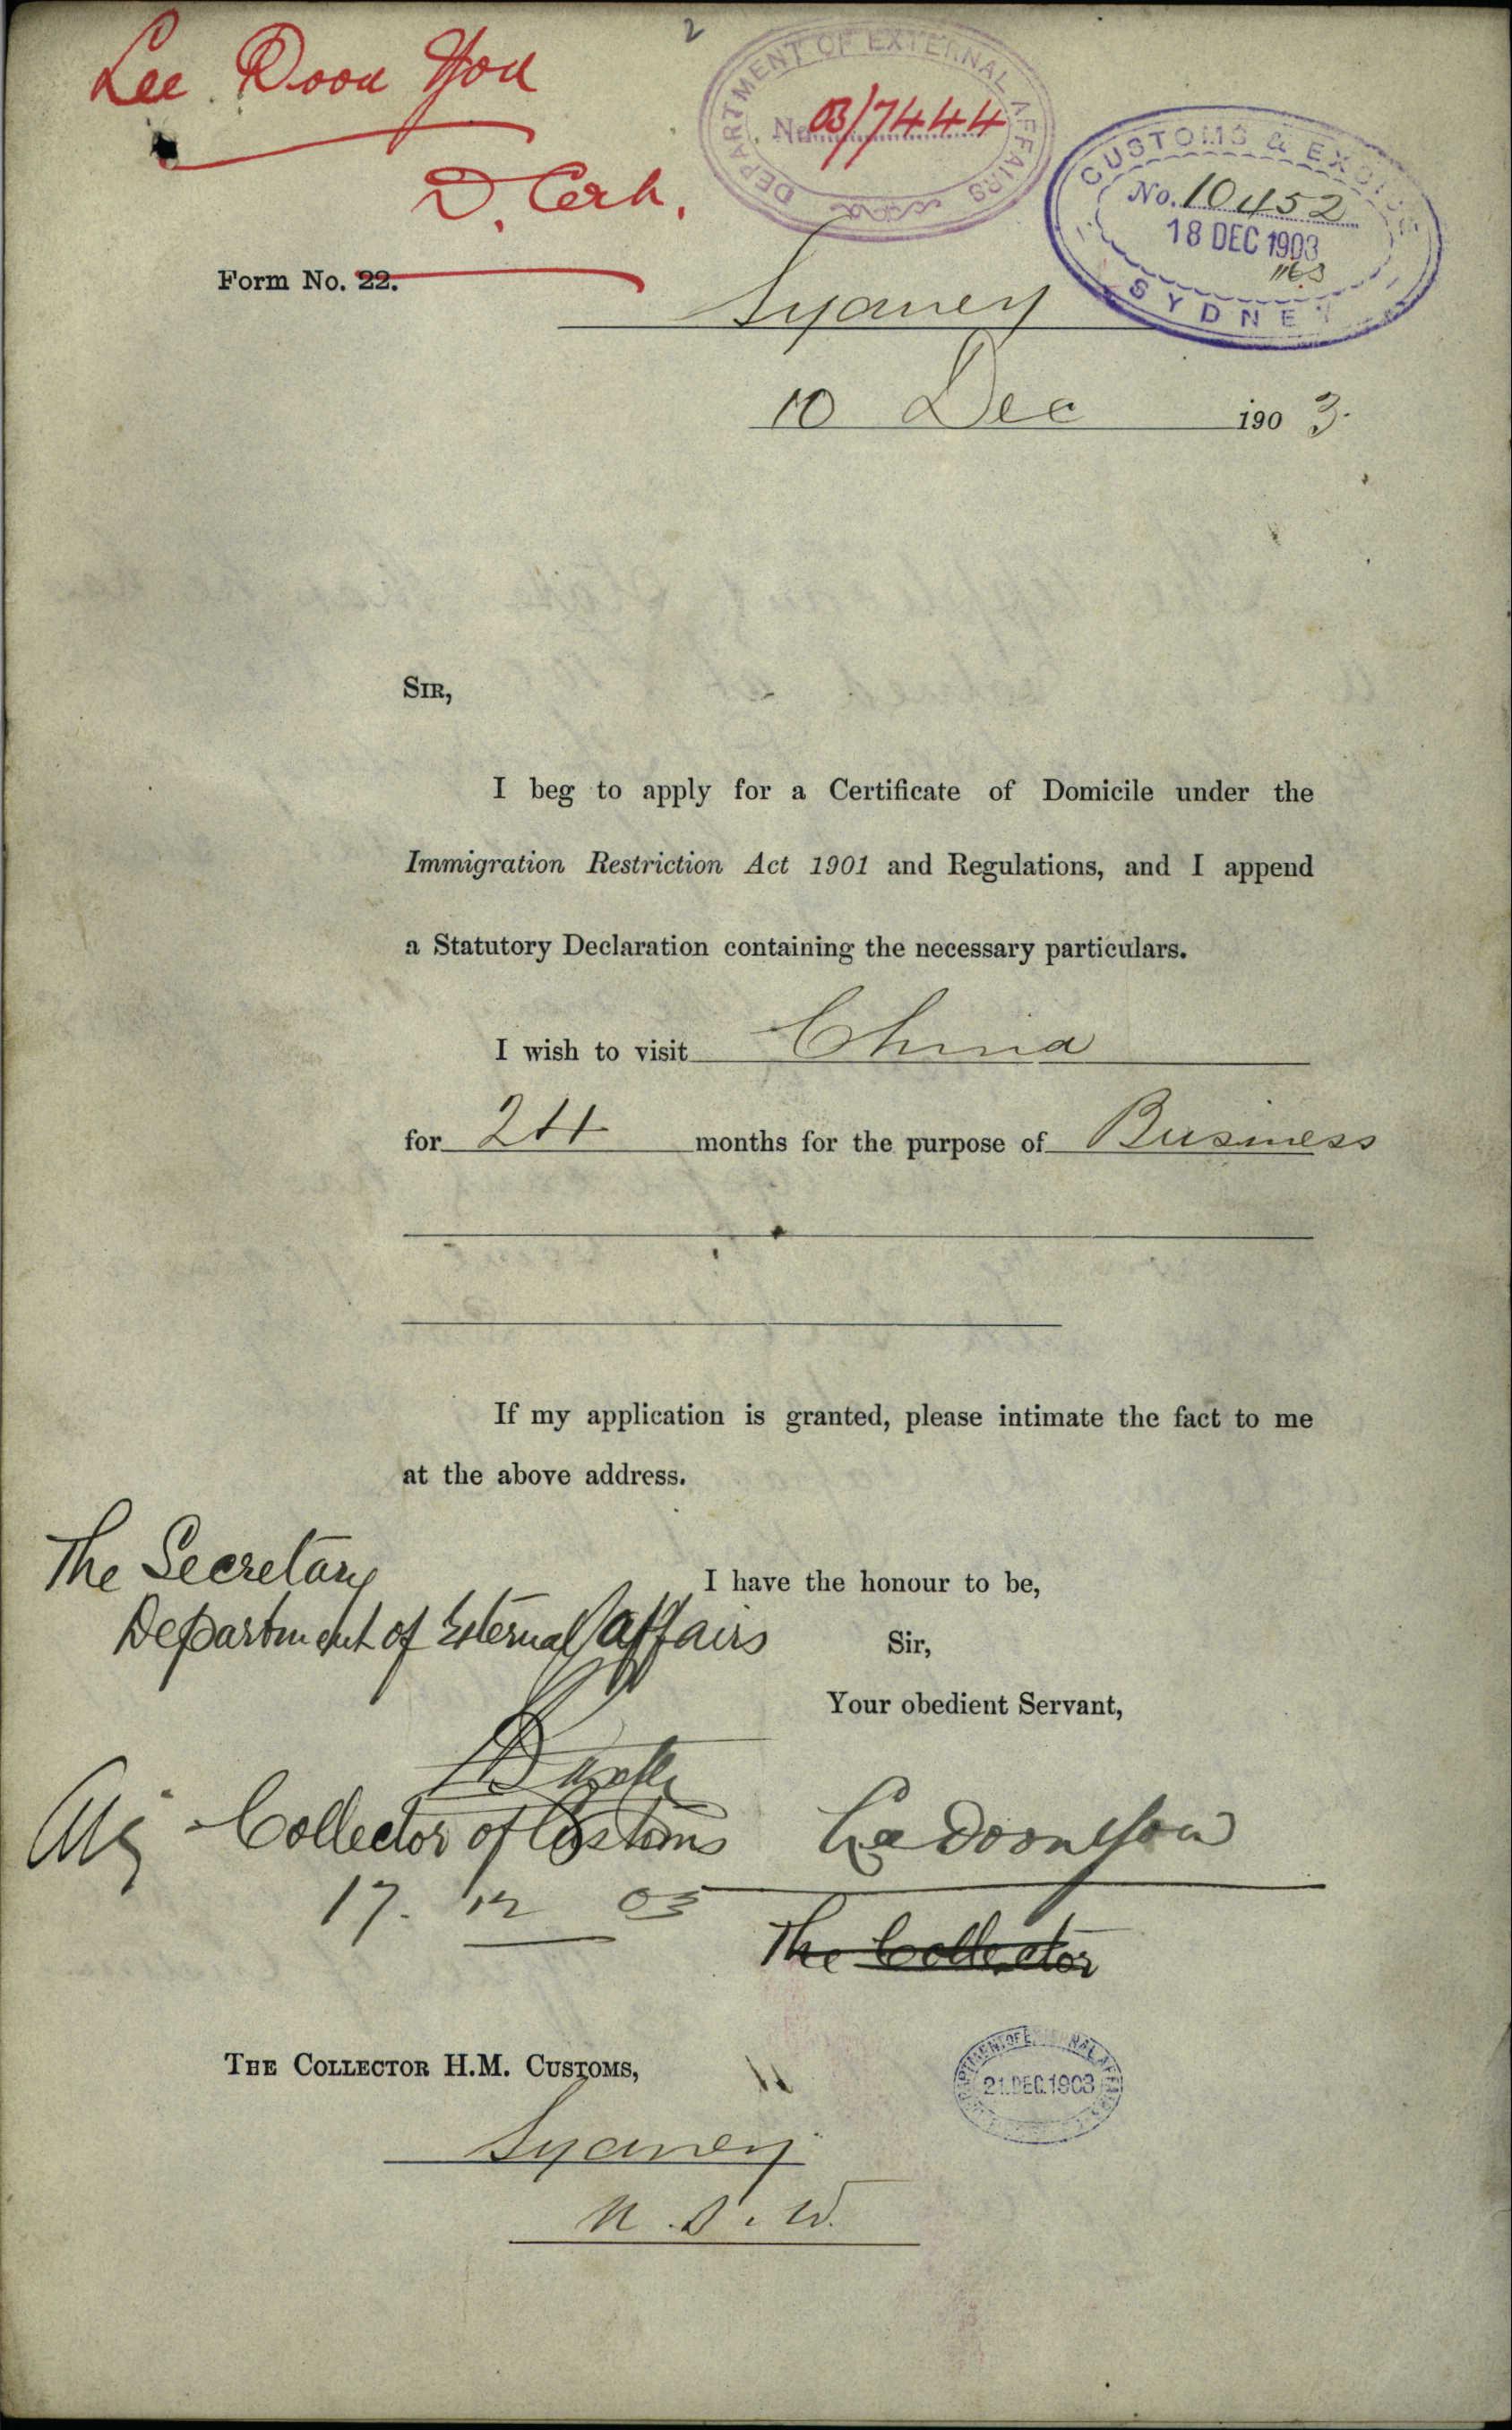 2
Lee Doon You
D. Cert.
DEPARTMENT OF EXTERNAL AFFAIRS
No 03/7444
CUSTOMS & EXCISE
No. 10452
18 DEC 1903
SYDNEY
Form No. 22.
Sydney
10 Dec 1903.
SIR,
I beg to apply for a Certificate of Domicile under the
Immigration Restriction Act 1901 and Regulations, and I append
a Statutory Declaration containing the necessary particulars.
I wish to visit China
for 24 months for the purpose of Business
If my application is granted, please intimate the fact to me
at the above address.
The Secretary
Department of External Affairs
I have the honour to be,
Sir,
Your obedient Servant,
Collector of Customs
17. 12 03
The Collector
THE COLLECTOR H.M. CUSTOMS,
21.DEC.1903
Sydney
N.S.W.